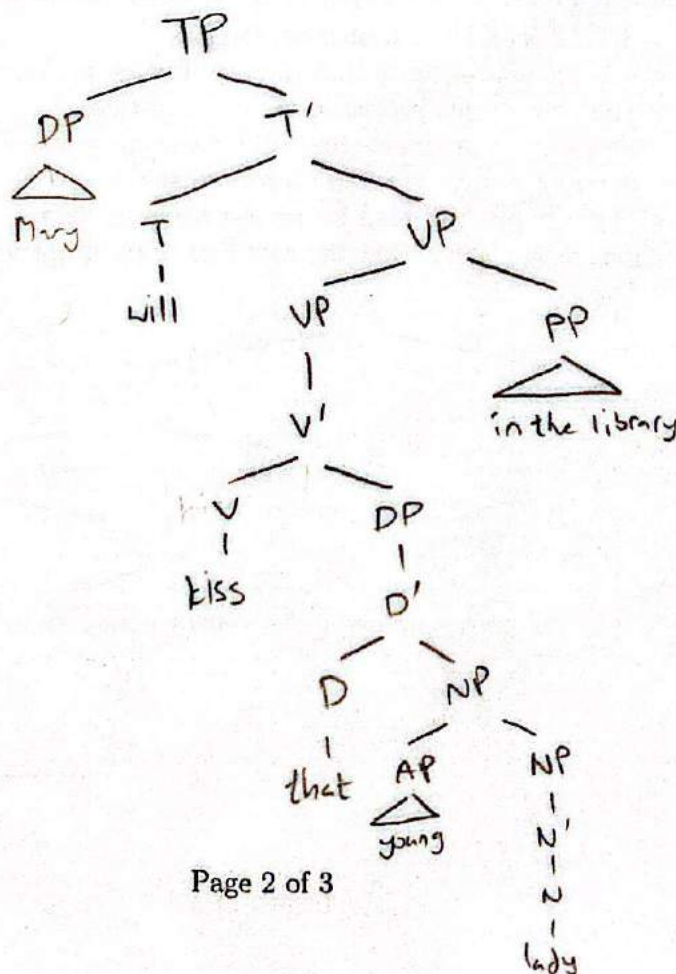 TP
DP T'
Mary T VP
will VP PP
V' in the library
V DP
kiss D'
D NP
that AP NP
young N'
Page 2 of 3 N
lady